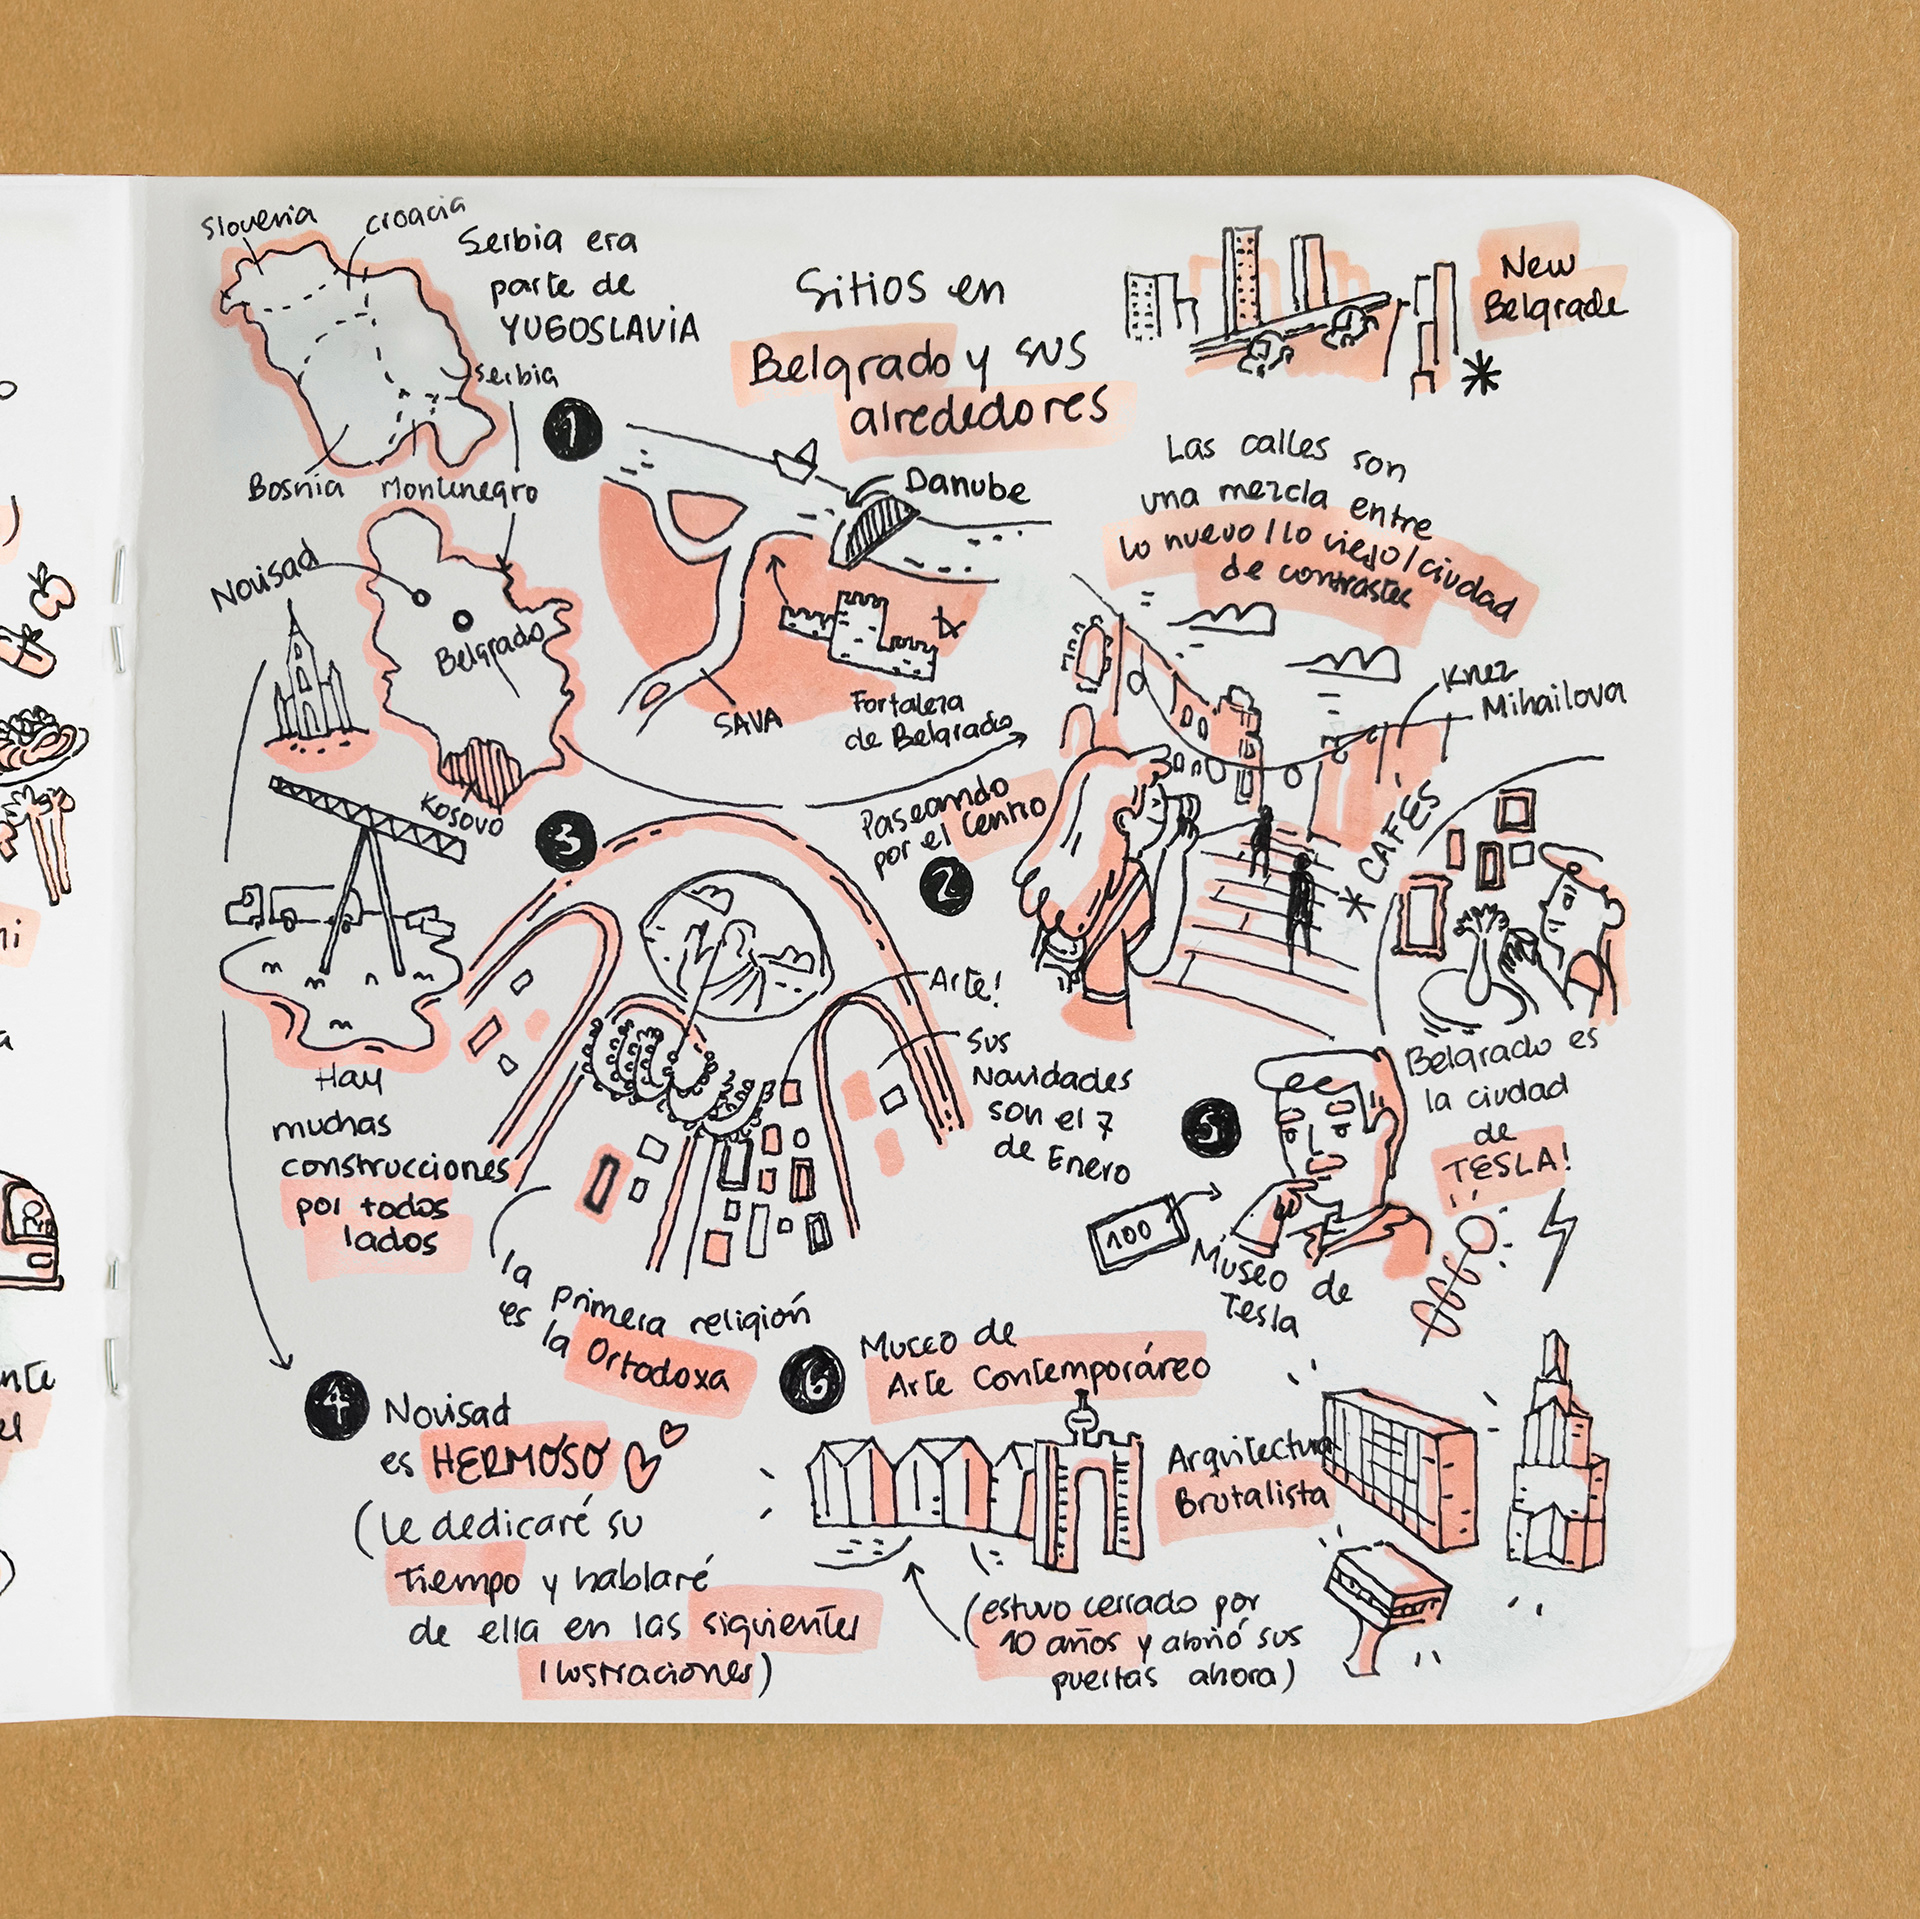 Slovenia
croacia
Serbia era
parte de
YUGOSLAVIA
Serbia
Bosnia
Montenegro
Sitios en
Belgrado y sus
alrededores
New
Belgrade
1
Danube
SAVA
Fortaleza
de Belgrado
Novisad
Belgrado
Kosovo
Las calles son
una mezcla entre
lo nuevo / lo viejo / ciudad
de contrastes
Knez
Mihailova
* CAFÉS
Paseando
por el centro
2
3
Arte!
Sus
Navidades
son el 7
de Enero
la Primera religión
es la Ortodoxa
Hay
muchas
construcciones
por todos
lados
4
Novisad
es HERMOSO
(Le dedicaré su
Tiempo y hablaré
de ella en las siguientes
Ilustraciones)
Belgrado es
la ciudad
de
TESLA!
5
100
Museo de
Tesla
6
Museo de
Arte Contemporáreo
Arquitectura
Brutalista
(estuvo cerrado por
10 años y abrió sus
puertas ahora)
ni
a
nte
el